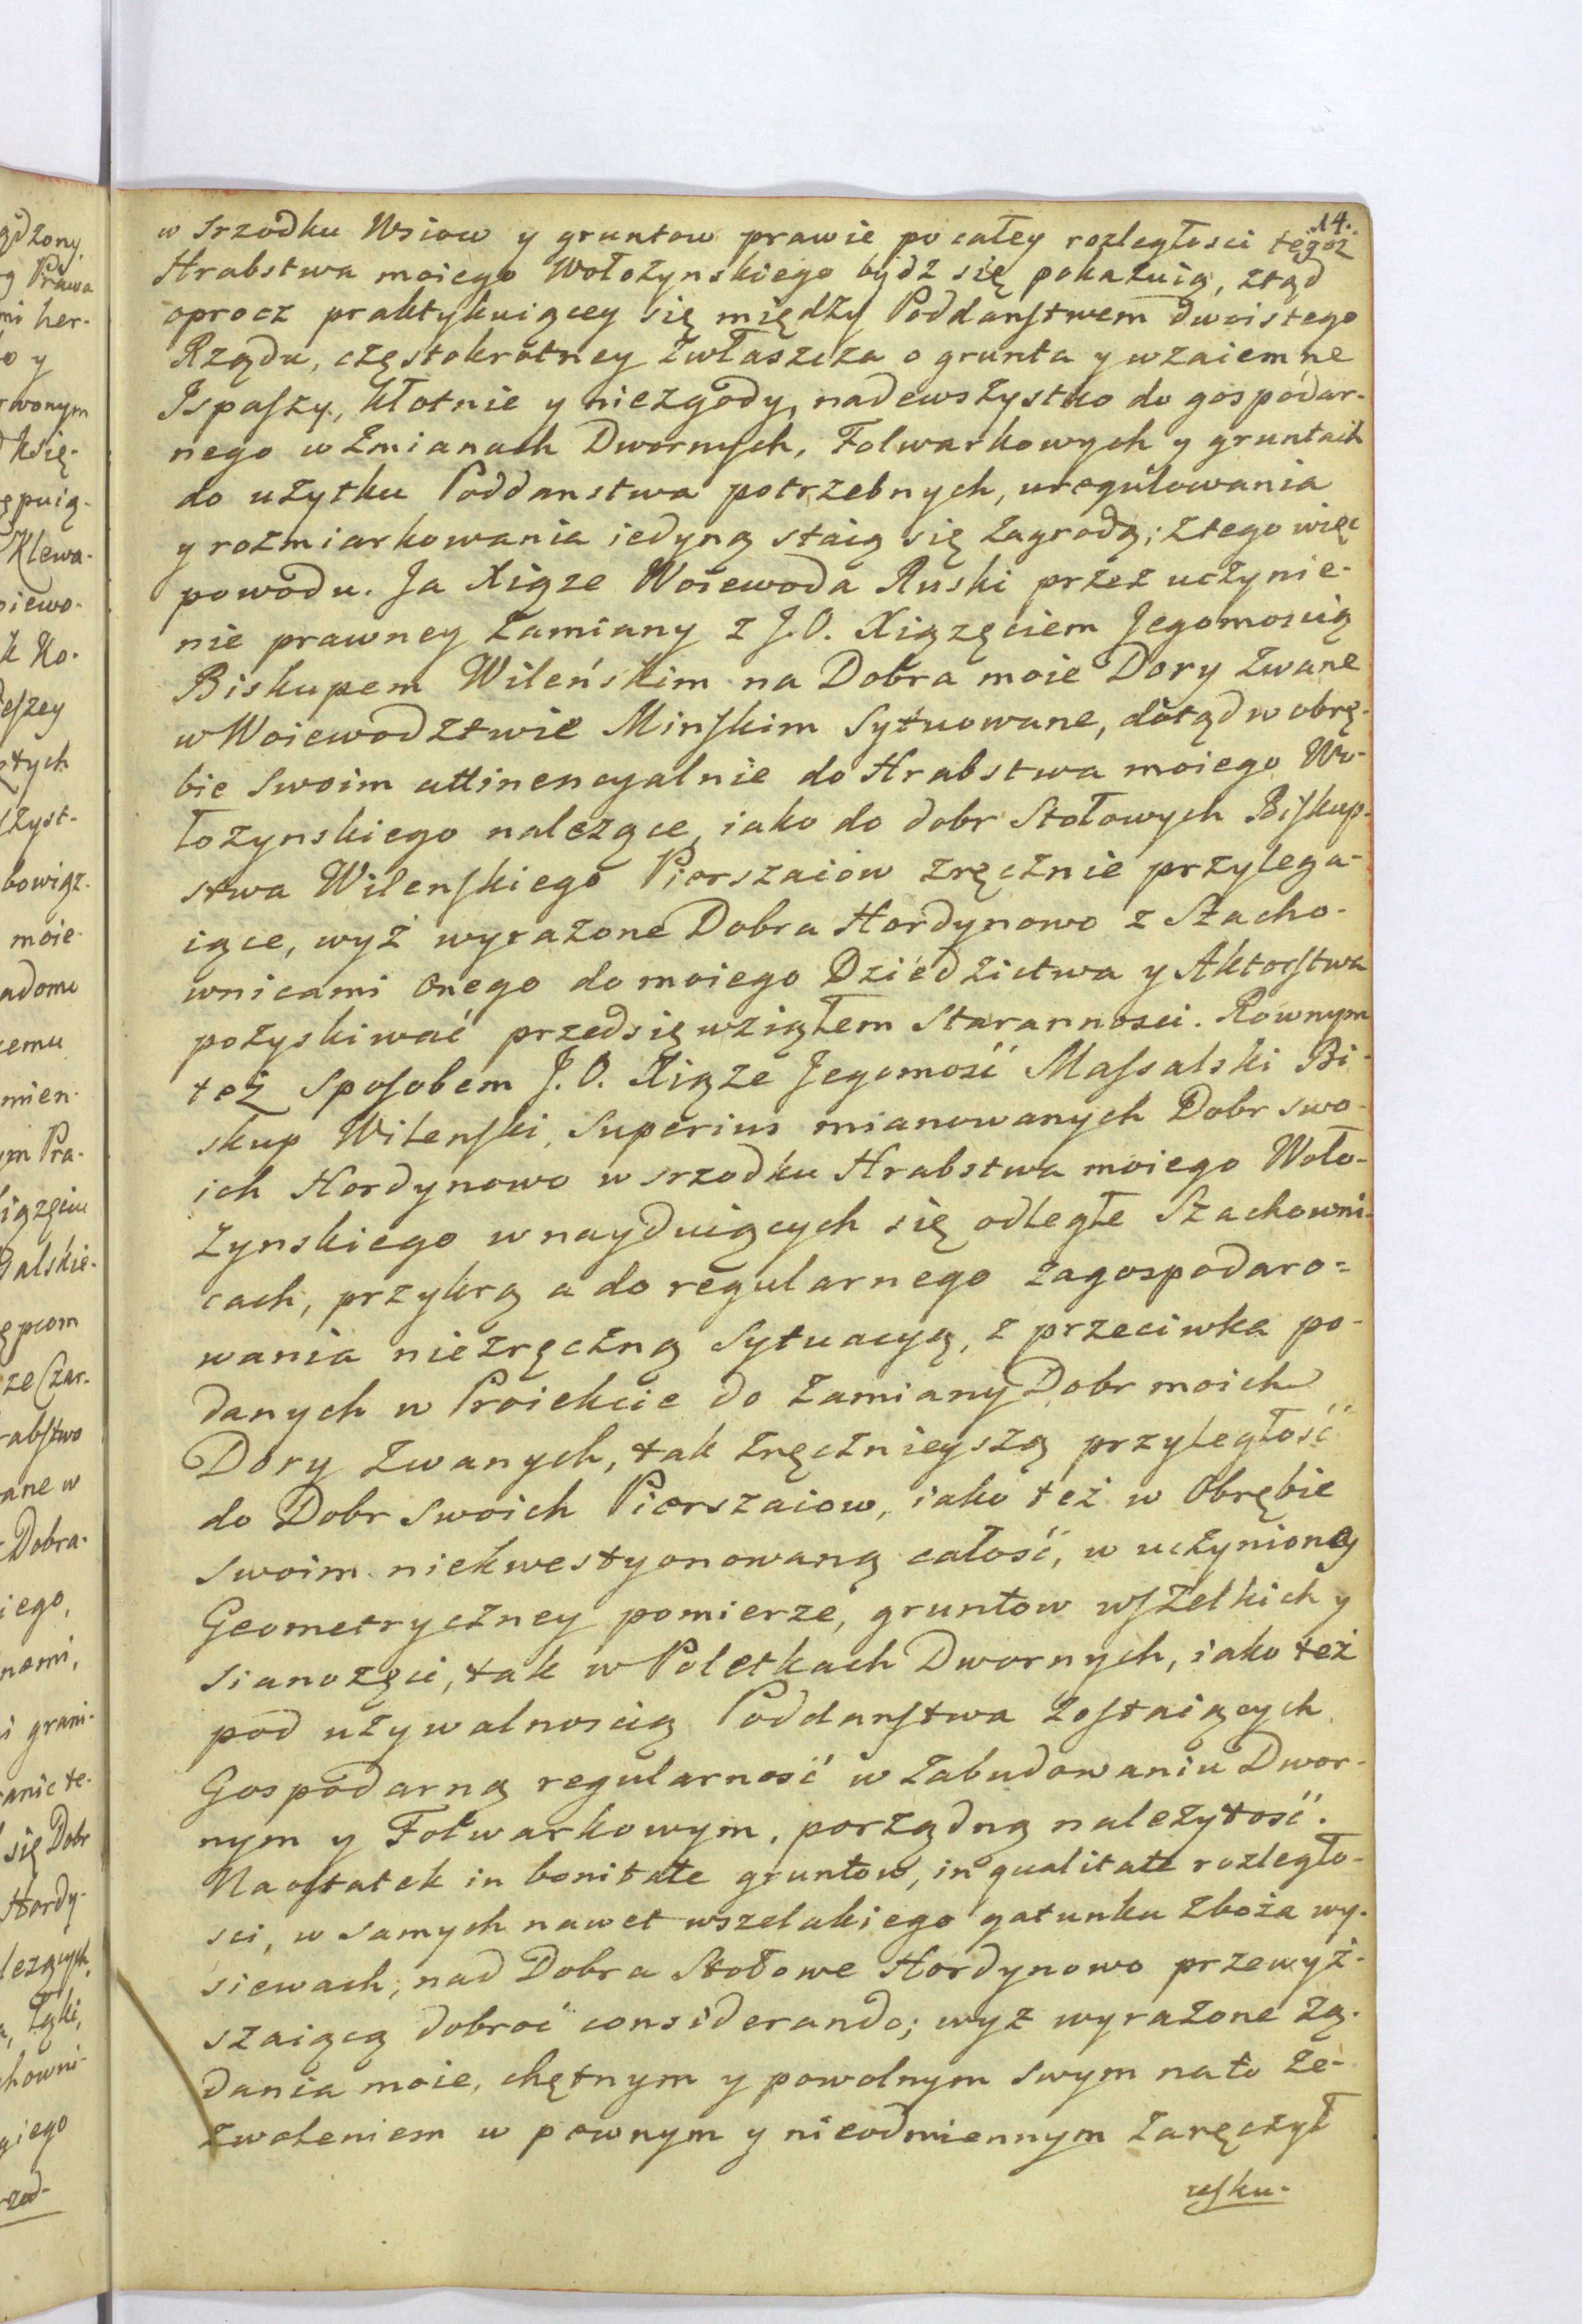 14.
w srzodku Wsiow y gruntow prawie po całey rozległosci tegoż
Hrabstwa moiego Wołożynskiego bydz się pokazuią, ztąd
oprocz praktykuiącey się między Poddanstwem dwoistego
Rządu, częstokrotney zwłaszcza o grunta y wzaiemne
Ispaszy, kłotnie y niezgody, nadewszystko do gospodar-
nego w Zmianach Dwornych, Folwarkowych y gruntach
do użytku Poddanstwa potrzebnych, uregulowania
y rozmiarkowania iedyną staią się zagrodą; z tego więc
powodu. Ja Xiąze Woiewoda Ruski przez uczynie-
nie prawney zamiany z J.O. Xiązęciem Jegomoscią
Biskupem Wileńskim na Dobra moie Dory zwane
w Woiewodztwie Minskim sytuowane, dotąd w obrę-
bie swoim attinencyalnie do Hrabstwa moiego Wo-
łozynskiego nalezące, iako do dobr Stołowych Biskup-
stwa Wilenskiego Pierszaiow zręcznie przylega-
iące, wyż wyrażone Dobra Hordynowo z Szacho-
wnicami onego do moiego Dziedzictwa y Aktorstwa
pozyskiwać przedsięwziąłem Starannosci. Rownym
też sposobem J.O. Xiąze Jegomość Massalski Bi-
skup Wilenski, Superius mianowanych Dobr swo-
ich Hordynowo w srzodku Hrabstwa moiego Woło-
zynskiego w nayduiących się odległe Szachowni-
cach, przykrą a do regularnego zagospodaro=
wania niezręczną sytuacyą, z przeciwka po-
danych w Proiekcie do zamiany Dobr moich
Dory zwanych, tak zręcznieyszą przyległość
do Dobr swoich Pierszaiow, iako też w Obrębie
swoim niekwestyonowaną całość, w uczynioney
Geometryczney pomierze, gruntow wszelkich y
sianozęci, tak w Poletkach Dwornych, iako też
pod używalnoscią Poddanstwa zostaiących
Gospodarną regularność w zabudowaniu Dwor-
nym y Folwarkowym, porządną należytość.
Naostatek in bonitate gruntow, in qualitate rozległo-
sci, w samych nawet wszelakiego gatunku zboża wy-
siewach, nad Dobra Stołowe Hordynowo przewyż-
szaiącą dobroć considerando; wyz wyrażone żą-
dania moie, chętnym y powolnym swym na to ze-
zwoleniem w pewnym y nieodmiennym zaręczył
usku-